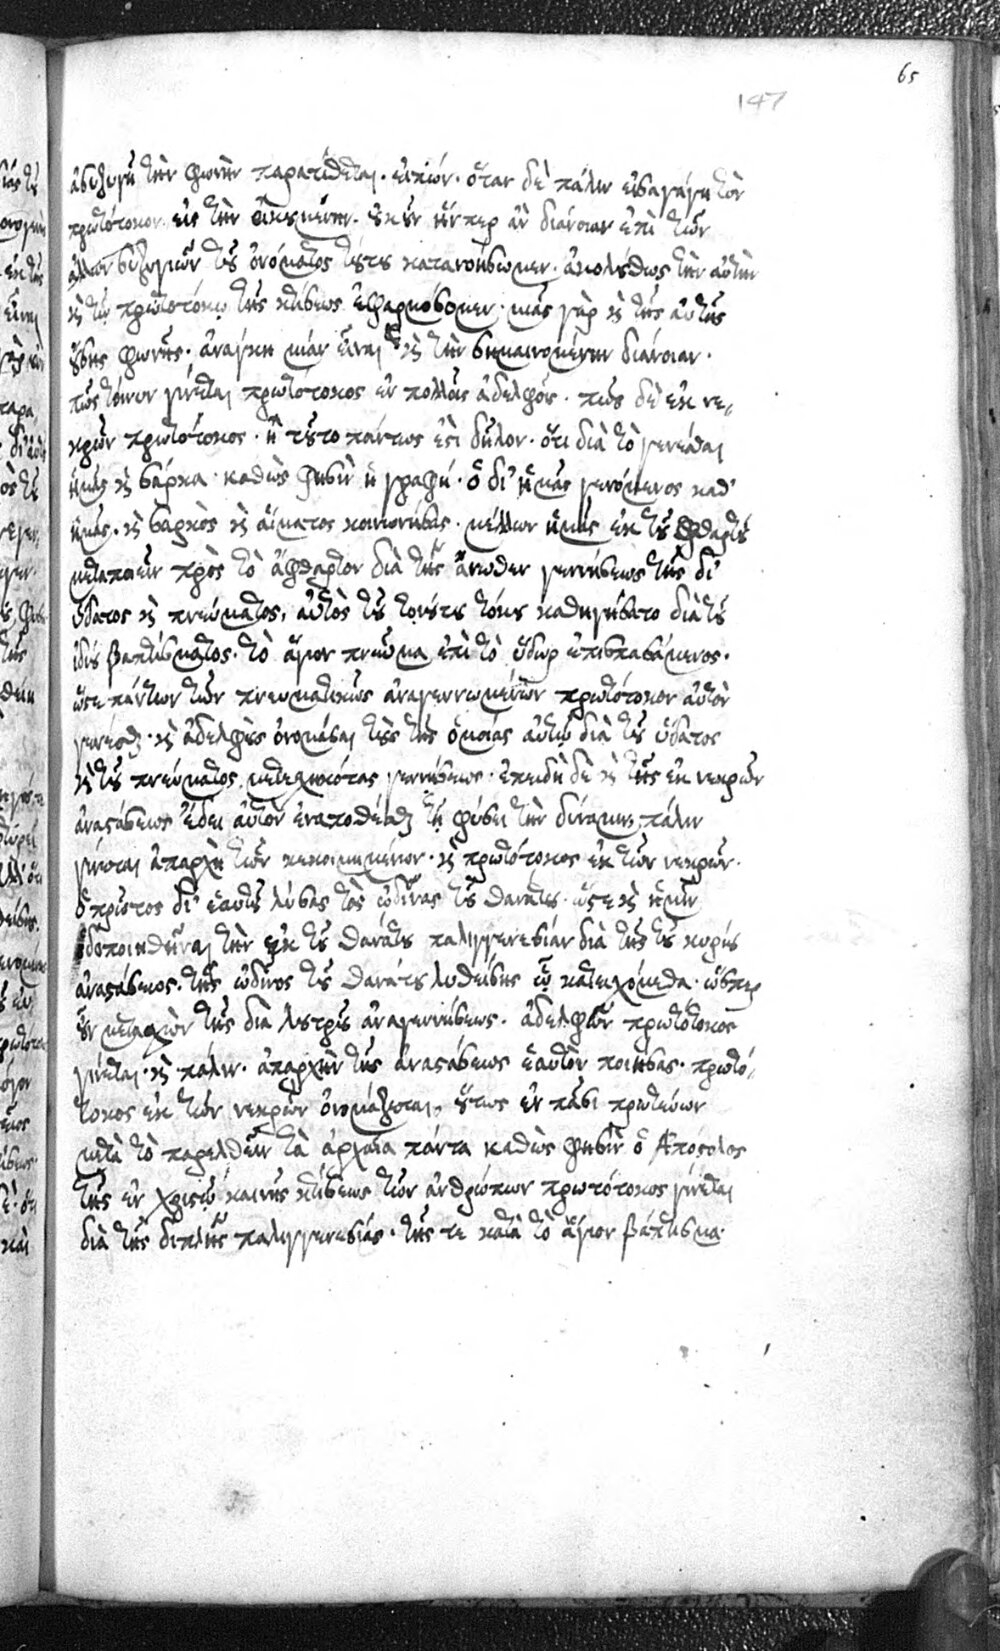 65
147
ἀσυζυγῆ τὴν φωνὴν παρατίθεται· εἰπών· ὅταν δὲ πάλιν εἰσαγάγη τὸν
πρωτότοκον εἰς τὴν οἰκουμένην. οὐκοῦν ἥνπερ ἂν διάνοιαν ἐπὶ τῶν
ἄλλων συζυγιῶν τοῦ ὀνόματος τούτου κατανοήσωμεν· ἀκολούθως τὴν αὐτὴν
καὶ τῷ πρωτοτόκῳ τῆς κτίσεως ἐφαρμόσομεν· μιᾶς γὰρ καὶ τῆς αὐτῆς
οὔσης φωνῆς· ἀνάγκη μίαν εἶναι καὶ τὴν σημαινομένην διάνοιαν·
πῶς τοίνυν γίνεται πρωτότοκος ἐν πολλοῖς ἀδελφοῖς· πῶς δὲ ἐκ νε-
κρῶν πρωτότοκος· ἢ τοῦτο πάντως ἐστὶ δῆλον· ὅτι διὰ τὸ γενέσθαι
ἡμᾶς καὶ σάρκα· καθὼς φησὶν ἡ γραφή· ὁ δι' ἡμᾶς γενόμενος καθ'
ἡμᾶς· καὶ σαρκὸς καὶ αἵματος κοινωνήσας· μέλλων ἡμᾶς ἐκ τοῦ φθαρτοῦ
μεταποιεῖν πρὸς τὸ ἄφθαρτον διὰ τῆς ἄνωθεν γεννήσεως τῆς δι'
ὕδατος καὶ πνεύματος, αὐτὸς τοῦ τοιούτου τόκου καθηγήσατο διὰ τοῦ
ἰδίου βαπτίσματος· τὸ ἅγιον πνεῦμα ἐπὶ τὸ ὕδωρ ἐπισπασάμενος·
ὥστε πάντων τῶν πνευματικῶς ἀναγεννωμένων πρωτότοκον αὐτὸν
γενέσθαι· καὶ ἀδελφοὺς ὀνομάσαι τοὺς τῆς ὁμοίας αὐτῷ διὰ τοῦ ὕδατος
καὶ τοῦ πνεύματος μετεσχηκότας γεννήσεως· ἐπειδὴ δὲ καὶ τῆς ἐκ νεκρῶν
ἀναστάσεως ἔδει αὐτὸν ἐναποθέσθαι τῇ φύσει τὴν δύναμιν, πάλιν
γίνεται ἀπαρχὴ τῶν κεκοιμημένων· καὶ πρωτότοκος ἐκ τῶν νεκρῶν·
ὁ πρῶτος δι' ἑαυτοῦ λύσας τὰς ὠδῖνας τοῦ θανάτου· ὥστε καὶ ἡμῖν
ὁδοποιηθῆναι τὴν ἐκ τοῦ θανάτου παλιγγενεσίαν διὰ τῆς τοῦ κυρίου
ἀναστάσεως· τῆς ὠδῖνος τοῦ θανάτου λυθείσης ᾧ κατειχόμεθα· ὥσπερ
οὖν μετασχὼν τῆς διὰ λουτροῦ ἀναγεννήσεως· ἀδελφῶν πρωτότοκος
γίνεται· καὶ πάλιν· ἀπαρχὴν τῆς ἀναστάσεως ἑαυτὸν ποιήσας· πρωτό-
τοκος ἐκ τῶν νεκρῶν ὀνομάζεται, οὕτως ἐν πᾶσι πρωτεύων
μετὰ τὸ παρελθεῖν τὰ ἀρχαῖα πάντα καθὼς φησὶν ὁ Ἀπόστολος
τῆς ἐν χριστῷ καινῆς κτίσεως τῶν ἀνθρώπων πρωτότοκος γίνεται
διὰ τῆς διπλῆς παλιγγενεσίας· τῆς τε κατὰ τὸ ἅγιον βάπτισμα·